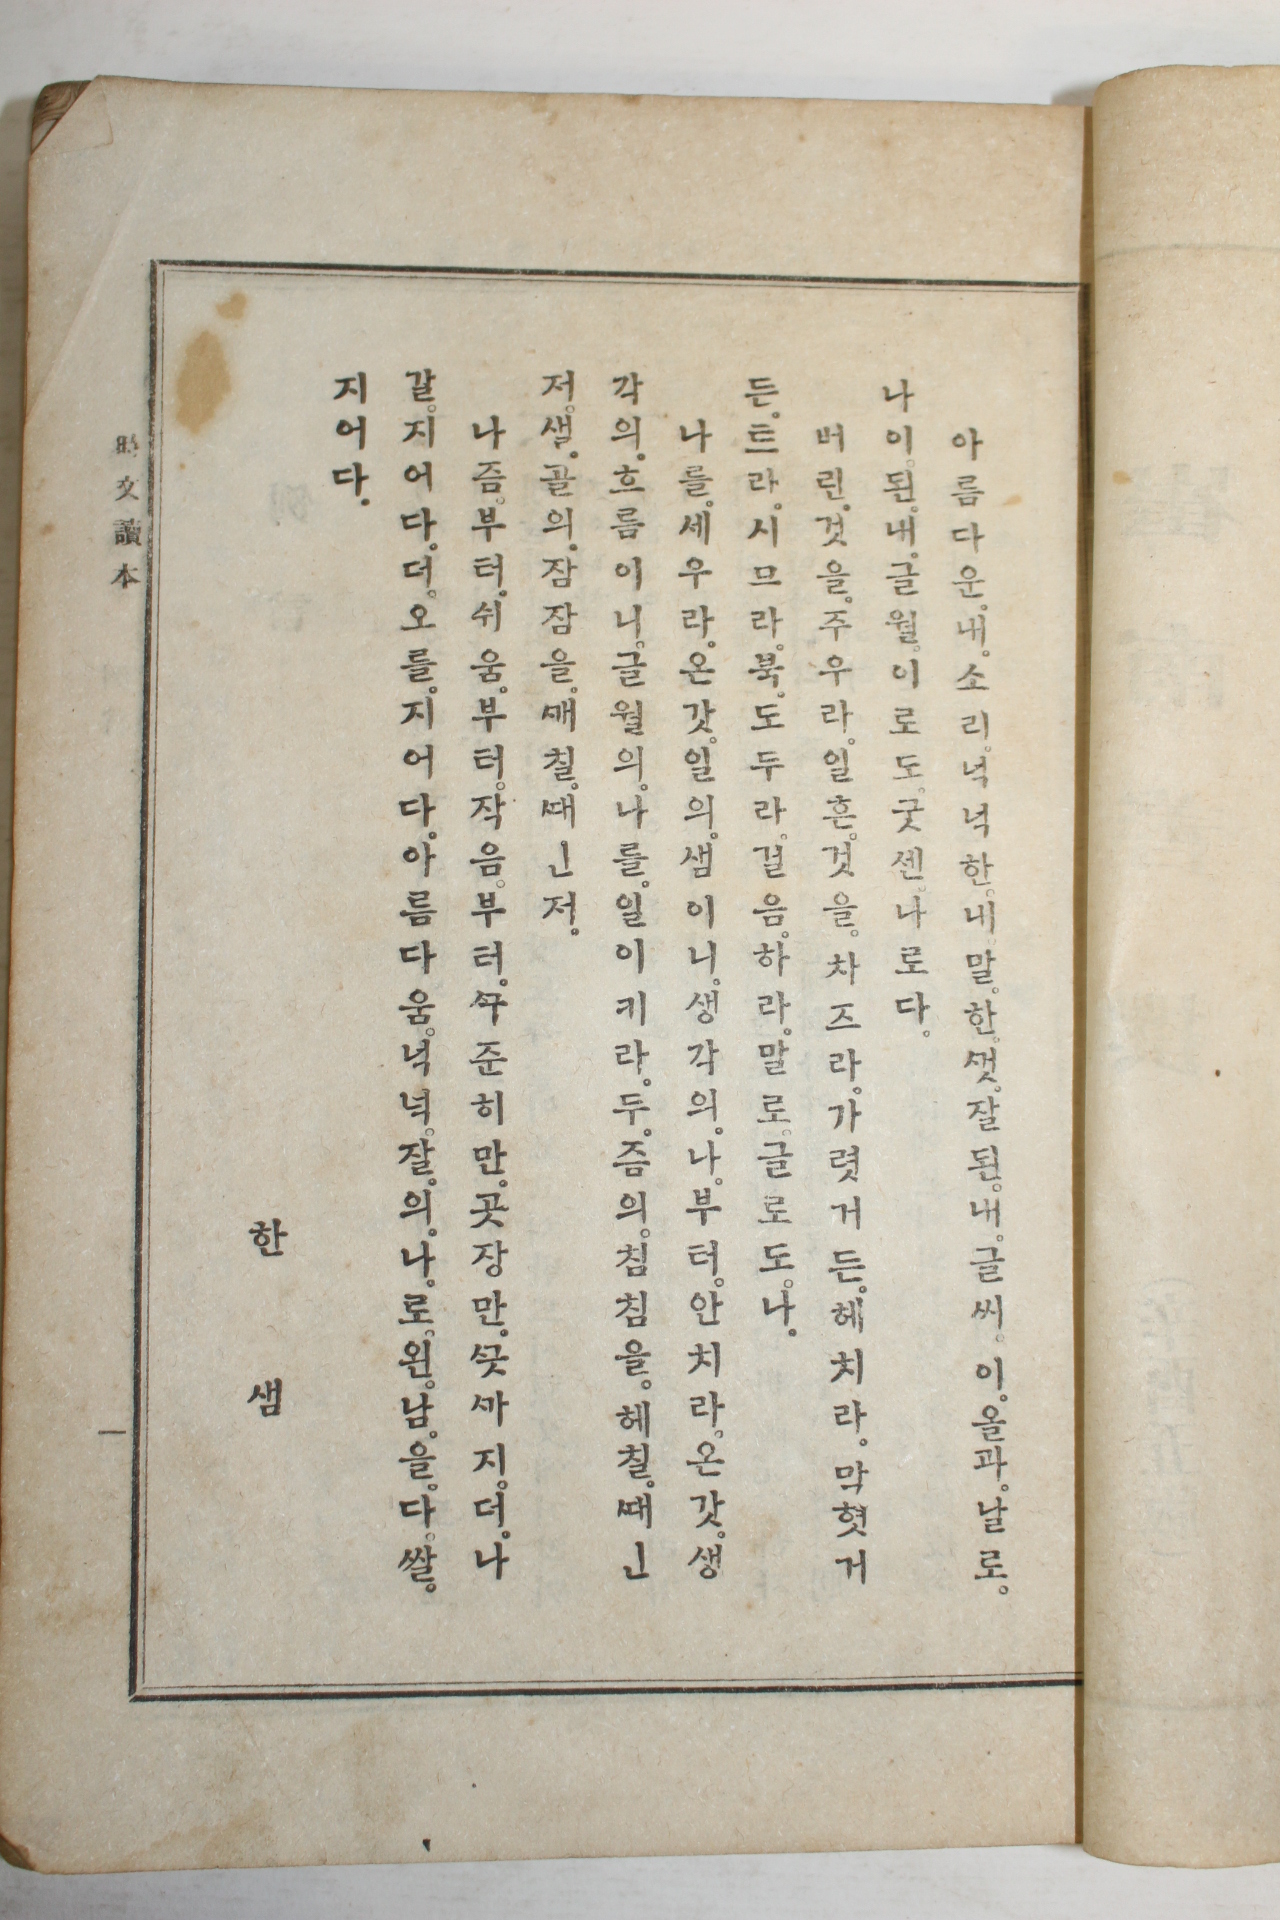 아름다운。내。소리。넉넉한。내。말。한。ᄭᅥᆺ。잘된。내。글씨。이。올과。날로。
나이。된。내。글월。이로도。굿센。나로다。
버린。것을。주우라。일흔。것을。차즈라。가렷거든。헤치라。막혓거
든。트라。시므라。북。도두라。걸음。하라。말로。글로도。나。
나를。세우라。온갓。일의。샘이니。생각의。나。부터。안치라。온갓。생
각의。흐름이니。글월의。나를。일이키라。두。즘의。침침을。헤칠。ᄯᅢᅟᅵᆫ
저。샐。골의。잠잠을。ᄭᅢ칠。ᄯᅢᅟᅵᆫ저。
나즘。부터。쉬움。부터。작음。부터。ᄭᅮ준히만。곳장만。ᄭᅳᆺᄭᅡ지。더。나
갈。지어다。더。오를。지어다。아름다움。넉넉。잘。의。나。로。왼。남。을。다。쌀。
지어다。
한샘
時文讀本
一